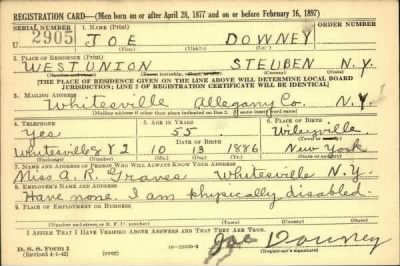 REGISTRATION CARD—(Men born on or after April 28, 1877 and on or before February 16, 1897)
SERIAL NUMBER 1. NAME (Print)
U 2905 JOE DOWNEY
(First) (Middle) (Last)
2. PLACE OF RESIDENCE (Print)
WEST UNION STEUBEN N.Y.
[THE PLACE OF RESIDENCE GIVEN ON THE LINE ABOVE WILL DETERMINE LOCAL BOARD
JURISDICTION; LINE 2 OF REGISTRATION CERTIFICATE WILL BE IDENTICAL]
3. MAILING ADDRESS
Whitesville Allegany Co. N.Y.
[Mailing address if other than place indicated on line 2. If same insert word same]
4. TELEPHONE 5. AGE IN YEARS 6. PLACE OF BIRTH
Yes 55 Wileyville
DATE OF BIRTH (Town or county)
Whitesville 8Y2 10 13 1886 New York
(Exchange) (Number) (Mo.) (Day) (Yr.) (State or country)
7. NAME AND ADDRESS OF PERSON WHO WILL ALWAYS KNOW YOUR ADDRESS
Miss A. R. Graves Whitesville N.Y.
8. EMPLOYER'S NAME AND ADDRESS
Have none. I am physically disabled.
9. PLACE OF EMPLOYMENT OR BUSINESS
(Number and street or R. F. D. number) (Town) (County) (State)
I AFFIRM THAT I HAVE VERIFIED ABOVE ANSWERS AND THAT THEY ARE TRUE.
D. S. S. Form 1
(Revised 4-1-42) (over)
Joe Downey
(Registrant's signature)